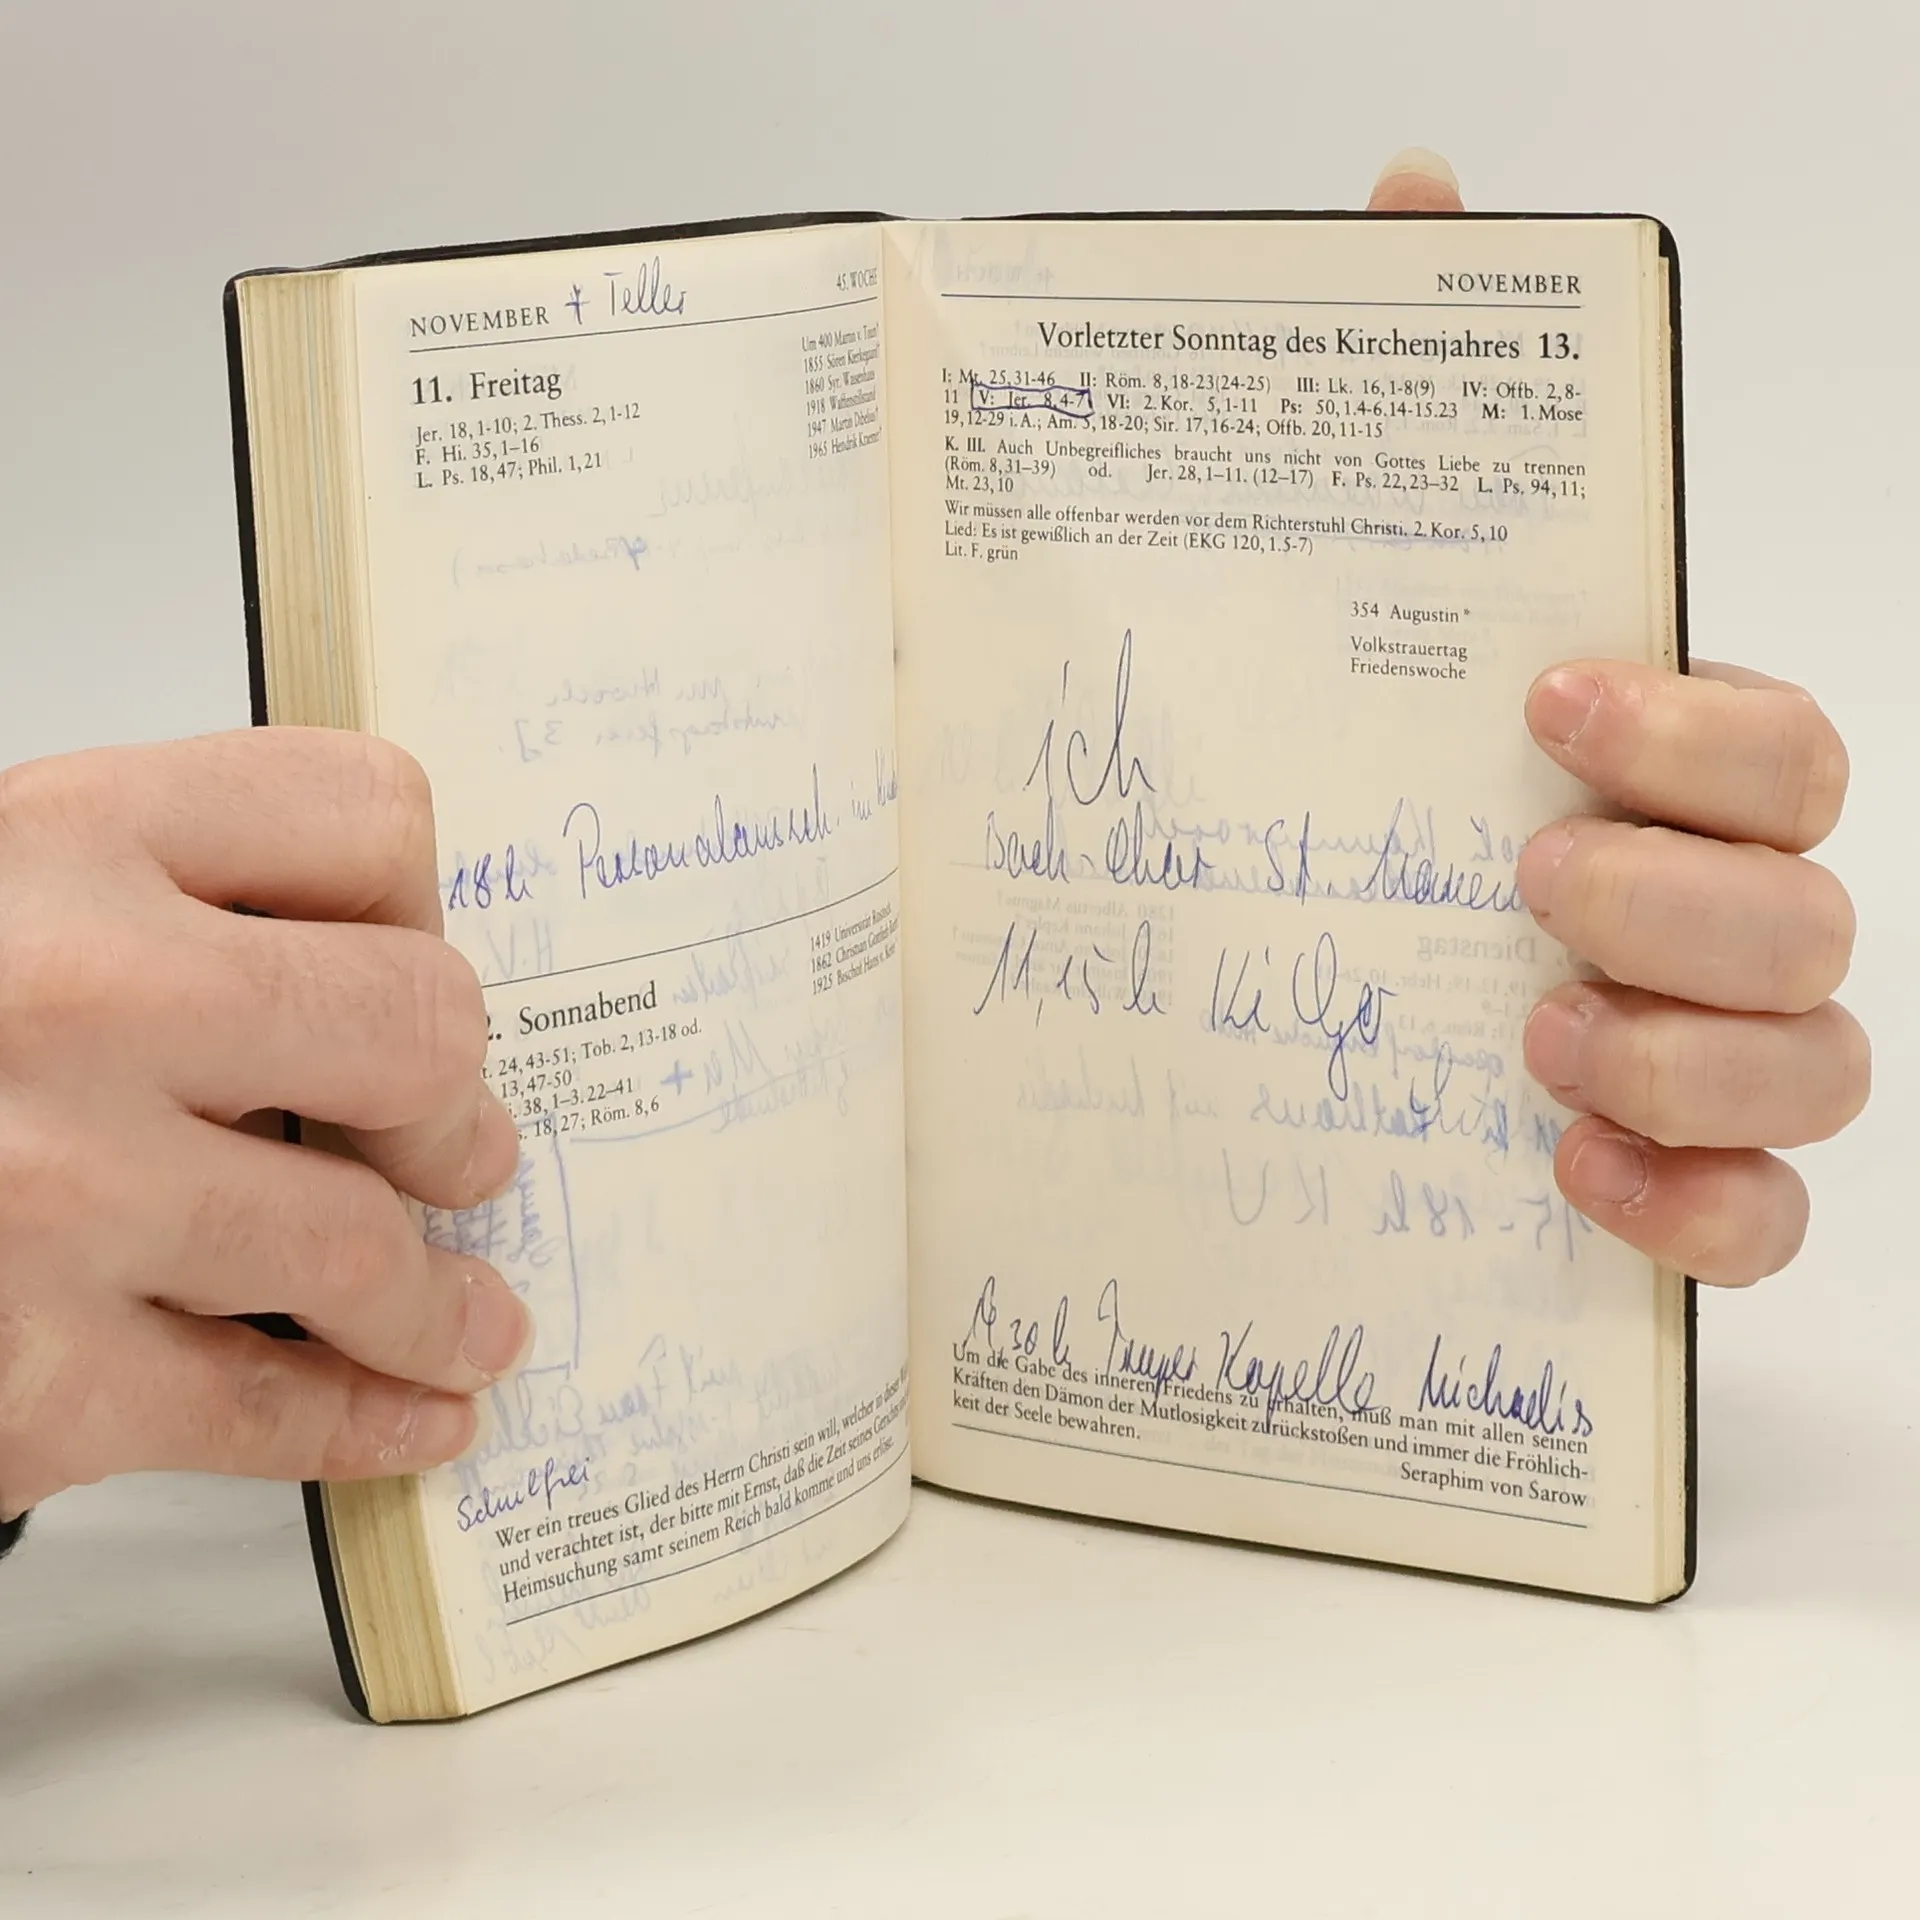 NOVEMBER + Teller
45. WOCHE
11. Freitag
Jer. 18,1-10; 2. Thess. 2,1-12
F. Hi. 35,1–16
L. Ps. 18,47; Phil. 1,21
Um 400 Martin v. Tours†
1855 Sören Kierkegaard†
1860 Syr. Waisenhaus
1918 Waffenstillstand
1947 Martin Dibelius†
1965 Hendrik Kraemer†
18 h Personalaussch. im
2. Sonnabend
24,43-51; Tob. 2,13-18 od.
13,47-50
38, 1–3.22–41
18,27; Röm. 8,6
1419 Universität Rostock
1862 Christian Gottlob
1925 Bischof Hans v.
Schulfrei
Wer ein treues Glied des Herrn Christi sein will, welcher in dieser
und verachtet ist, der bitte mit Ernst, daß die Zeit seines Gerichts
Heimsuchung samt seinem Reich bald komme und uns erlöse.
NOVEMBER
Vorletzter Sonntag des Kirchenjahres 13.
I: Mt. 25,31-46 II: Röm. 8,18-23(24-25) III: Lk. 16,1-8(9) IV: Offb. 2,8-
11 V: Jer. 8,4-7 VI: 2. Kor. 5,1-11 Ps: 50,1.4-6.14-15.23 M: 1. Mose
19,12-29 i. A.; Am. 5,18-20; Sir. 17,16-24; Offb. 20,11-15
K. III. Auch Unbegreifliches braucht uns nicht von Gottes Liebe zu trennen
(Röm. 8,31–39) od. Jer. 28,1–11. (12–17) F. Ps. 22,23–32 L. Ps. 94,11;
Mt. 23,10
Wir müssen alle offenbar werden vor dem Richterstuhl Christi. 2. Kor. 5,10
Lied: Es ist gewißlich an der Zeit (EKG 120,1.5-7)
Lit. F. grün
354 Augustin *
Volkstrauertag
Friedenswoche
ich
Bach-Chor St.
11,15 h Ki Go
30 h Kapelle Michaelis
Um die Gabe des inneren Friedens zu erhalten, muß man mit allen seinen
Kräften den Dämon der Mutlosigkeit zurückstoßen und immer die Fröhlich-
keit der Seele bewahren.
Seraphim von Sarow